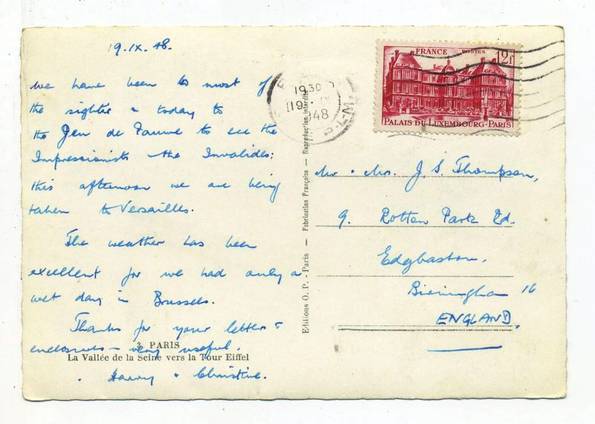 19.IX.48.
We have been to most of
the sights & today to
the Jeu de Paume to see the
Impressionists & the Invalides:
this afternoon we are being
taken to Versailles.
The weather has been
excellent for we had only a
wet day in Brussels.
Thanks for your letter &
enclosures — very useful.
Harry & Christine.
PARIS
La Vallée de la Seine vers la Tour Eiffel
Editions O. P. - Paris — Fabrication Française — Reproduction interdite
1930
19
1948
FRANCE POSTES 12f
PALAIS DU LUXEMBOURG-PARIS
Mr & Mrs. J. S. Thompson,
9. Rotten Park Rd.
Edgbaston.
Birmingham 16
ENGLAND.